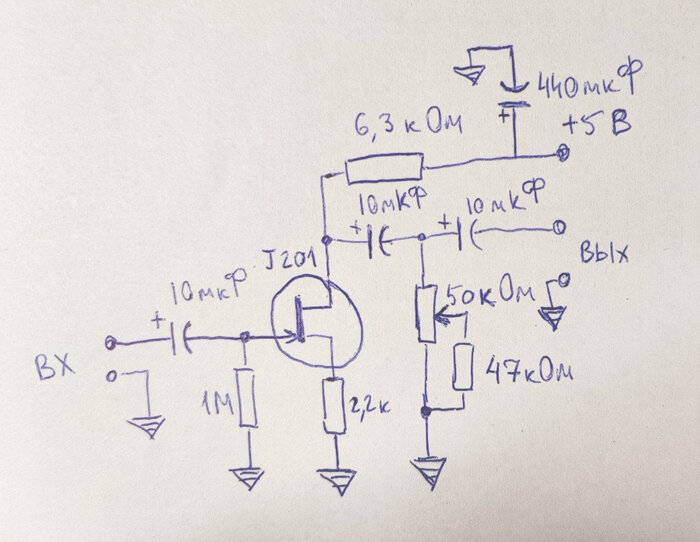 440мкФ
+
+5В
6,3кОм
10мкФ
+
10мкФ
+
J201
ВЫХ
10мкФ
+
50кОм
ВХ
1М
2,2к
47кОм